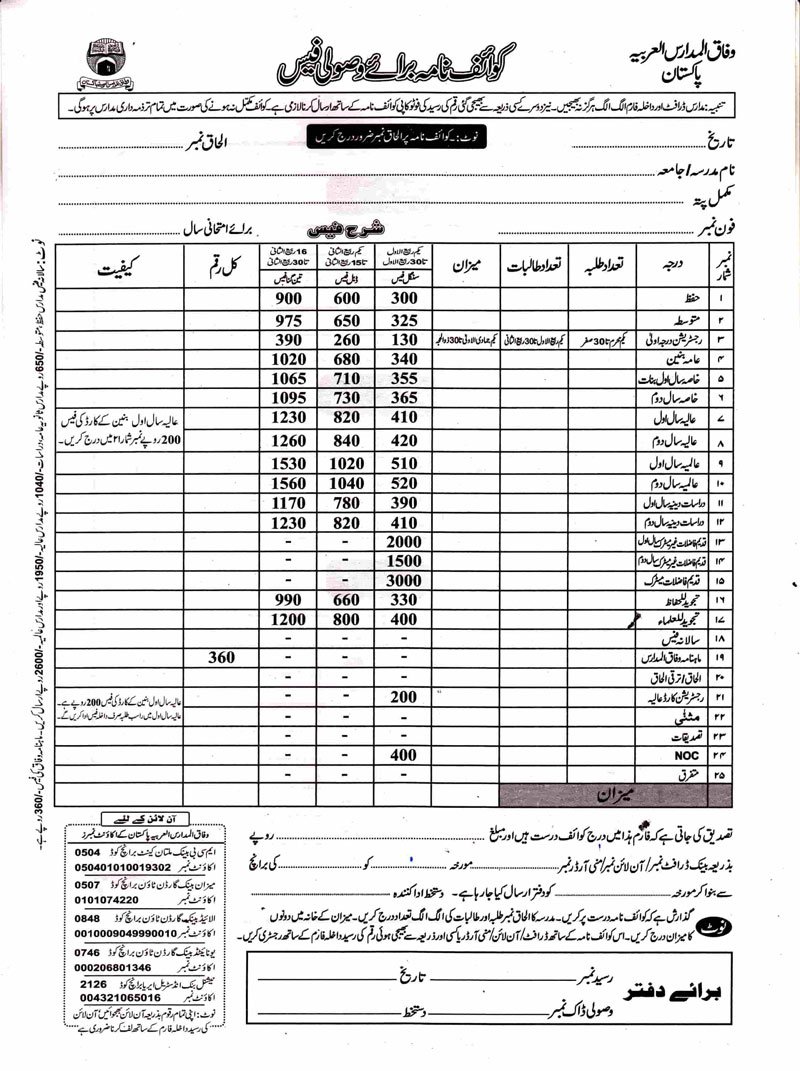 وفاق المدارس العربیہ
پاکستان
کوائف نامہ برائے وصولی فیس
تنبیہ: مدارس ڈرافٹ اور داخلہ فارم الگ الگ ہرگز نہ بھیجیں۔ نیز دوسرے کسی ذریعہ سے بھیجی گئی رقم کی رسید کی فوٹو کاپی کوائف نامہ کے ساتھ ارسال کرنا لازمی ہے۔ کوائف مکمل نہ ہونے کی صورت میں تمام تر ذمہ داری مدارس پر ہوگی۔
تاریخ
نوٹ:۔ کوائف نامہ پر الحاق نمبر ضرور درج کریں
الحاق نمبر
نام مدرسہ/جامعہ
مکمل پتہ
فون نمبر
شرح فیس
برائے امتحانی سال
نمبر شمار درجہ تعداد طلبہ تعداد طالبات میزان یکم ربیع الاول تا 30 ربیع الاول سنگل فیس یکم ربیع الثانی تا 15 ربیع الثانی ڈبل فیس 16 ربیع الثانی تا 30 ربیع الثانی تین گنا فیس کل رقم کیفیت
۱ حفظ 300 600 900
۲ متوسطہ 325 650 975
۳ رجسٹریشن درجہ اولیٰ یکم محرم تا 30 صفر یکم ربیع الاول تا 30 ربیع الثانی یکم جمادی الاولیٰ تا 30 ذوالحجہ 130 260 390
۴ عامہ بنین 340 680 1020
۵ خاصہ سال اول بنات 355 710 1065
۶ خاصہ سال دوم 365 730 1095
۷ عالیہ سال اول 410 820 1230 عالیہ سال اول بنین کے کارڈ کی فیس
۸ عالیہ سال دوم 420 840 1260 200 روپے نمبر شمار ۲۱ میں درج کریں۔
۹ عالمیہ سال اول 510 1020 1530
۱۰ عالمیہ سال دوم 520 1040 1560
۱۱ دراسات دینیہ سال اول 390 780 1170
۱۲ دراسات دینیہ سال دوم 410 820 1230
۱۳ قدیم فاضلات غیر میٹرک سال اول 2000 - -
۱۴ قدیم فاضلات غیر میٹرک سال دوم 1500 - -
۱۵ قدیم فاضلات میٹرک 3000 - -
۱۶ تجوید للحفاظ 330 660 990
۱۷ تجوید للعلماء 400 800 1200
۱۸ سالانہ فیس - - -
۱۹ ماہنامہ وفاق المدارس - - - 360
۲۰ الحاق/ترقی الحاق - - -
۲۱ رجسٹریشن کارڈ عالیہ 200 - - عالیہ سال اول بنین کے کارڈ کی فیس 200 روپے ہے۔
۲۲ مثنّٰی - - - عالیہ سال اول میں راسب طلبہ صرف داخلہ فیس ادا کریں گے۔
۲۳ تصدیقات - - -
۲۴ NOC 400 - -
۲۵ متفرق - - -
میزان
نوٹ: سالانہ فیس مدارس حفظ متوسطہ -/650 روپے مدارس ثانویہ عامہ دراسات -/1040 روپے مدارس عالیہ -/1950 اور مدارس عالمیہ -/2600 روپے ارسال کریں۔ ماہنامہ وفاق کی فیس -/360 روپے ہے۔
تصدیق کی جاتی ہے کہ فارم ہذا میں درج کوائف درست ہیں اور مبلغ روپے
بذریعہ بینک ڈرافٹ نمبر/آن لائن نمبر/منی آرڈر نمبر مورخہ کو کی برانچ
سے بنوا کر مورخہ کو دفتر ارسال کیا جا رہا ہے۔ دستخط ادا کنندہ
نوٹ
گذارش ہے کہ کوائف نامہ درست پر کریں۔ مدرسہ کا الحاق نمبر طلبہ اور طالبات کی الگ الگ تعداد درج کریں۔ میزان کے خانہ میں دونوں
کا میزان درج کریں۔ اس کوائف نامہ کے ساتھ ڈرافٹ/آن لائن/منی آرڈر یا کسی اور ذریعہ سے بھیجی ہوئی رقم کی رسید داخلہ فارم کے ساتھ رجسٹری کریں۔
برائے دفتر
رسید نمبر تاریخ
وصولی ڈاک نمبر دستخط
آن لائن کے لئے
وفاق المدارس العربیہ پاکستان کے اکاؤنٹ نمبرز
ایم سی بی بینک ملتان کینٹ برانچ کوڈ 0504
اکاؤنٹ نمبر 0504010100​19302
میزان بینک گارڈن ٹاؤن برانچ کوڈ 0507
اکاؤنٹ نمبر 0101074220
الائیڈ بینک گارڈن ٹاؤن برانچ کوڈ 0848
اکاؤنٹ نمبر 0010009049990010
یونائیٹڈ بینک گارڈن ٹاؤن برانچ کوڈ 0746
اکاؤنٹ نمبر 000206801346
نیشنل بنک انڈسٹریل ایریا برانچ کوڈ 2126
اکاؤنٹ نمبر 004321065016
نوٹ: اپنی تمام رقوم بذریعہ آن لائن بھجوائیں آن لائن
کی رسید داخلہ فارم کے ساتھ لف کرنا ضروری ہے